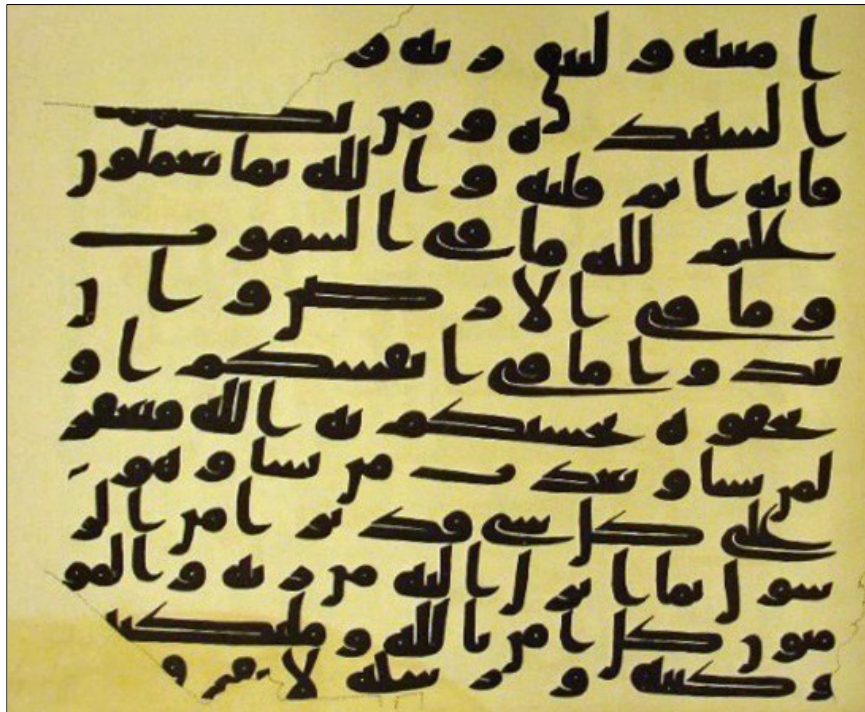 امنته وليتق ربه و
الشهدة ومن يكتمها
فانه اثم قلبه والله بما تعملون
عليم لله ما في السموت
وما في الارض وان
تبدوا ما في انفسكم او
تخفوه يحسبكم به الله فيغفر
لمن يشا ويعذب من يشا وهو
على كل شي قدير امن الر
سول بما انزل اليه من ربه والمو
منون كل امن بالله وملئكته
وكتبه ورسله لا نفرق